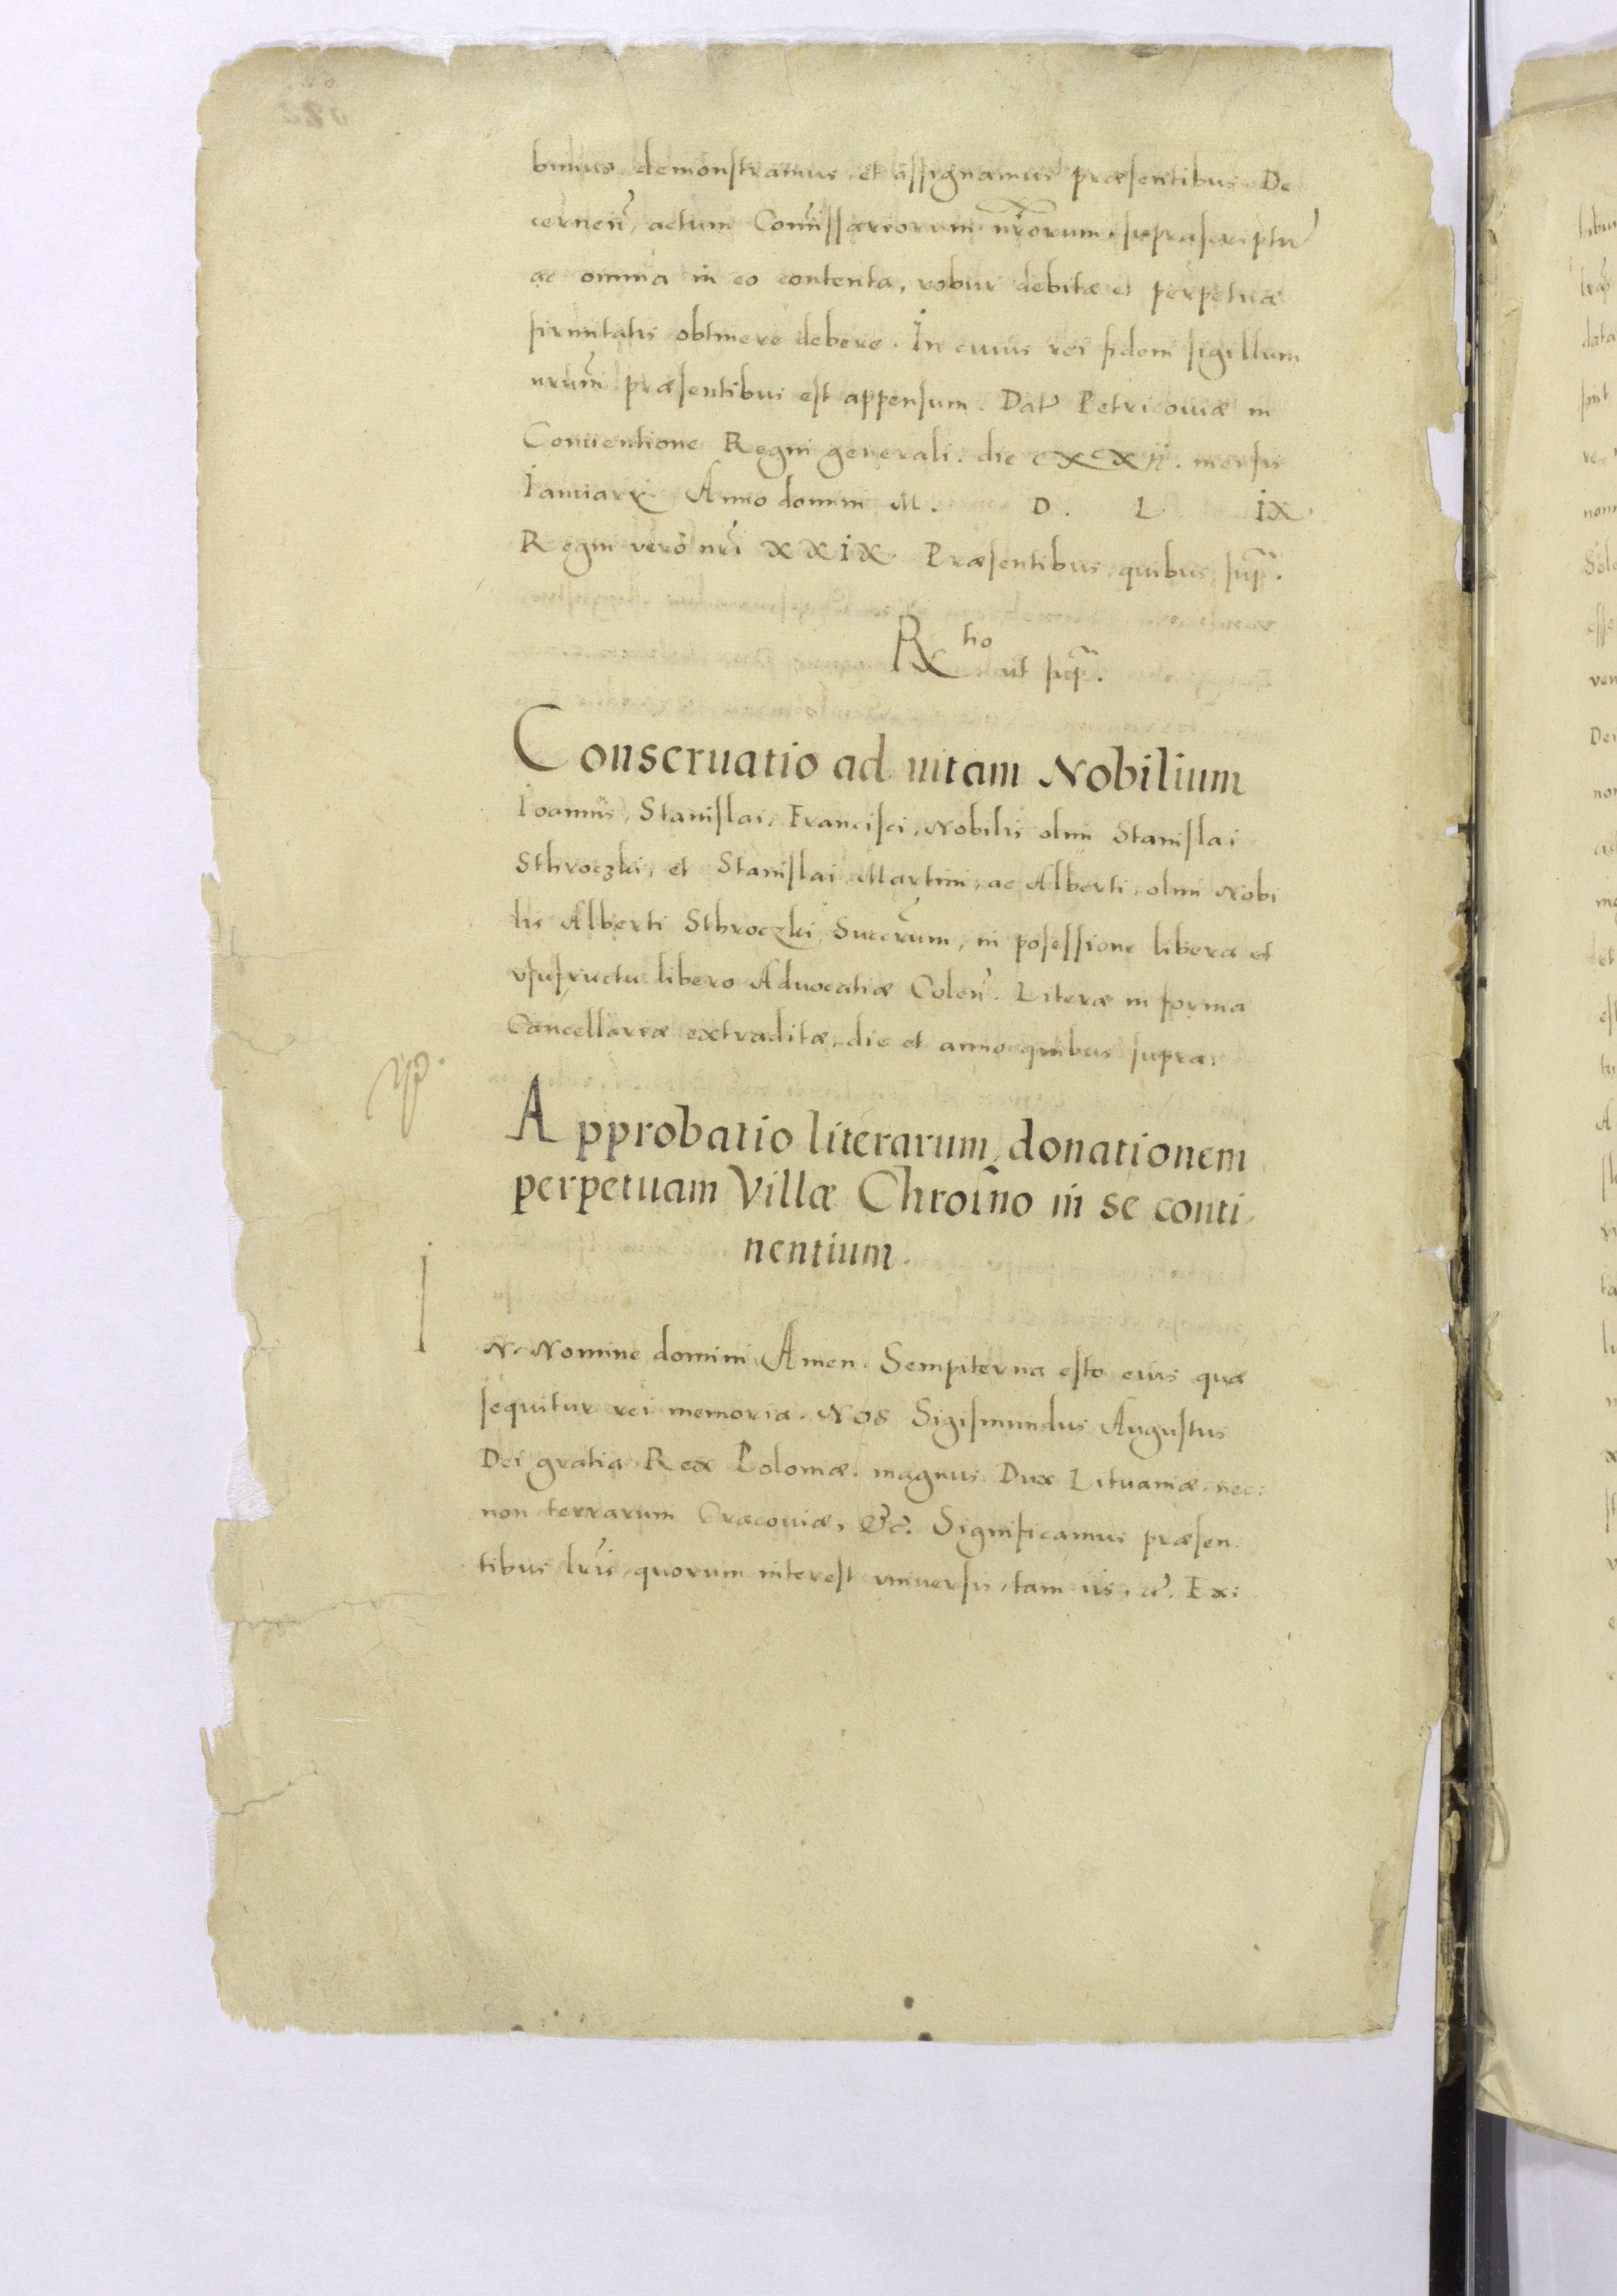 bimus, demonstramus, et assignamus præsentibus. De
cerneñ, actum Com̃issariorum nr̃orum suprascriptũ
ac omnia in eo contenta, robur debitæ et perpetuæ
firmitatis obtinere debere. In cuius rei fidem sigillum
nrũm præsentibus est appensum. Dat̃ Petricouiæ in
Conuentione Regni generali. die XXII. mensis
Ianuarii. Anno domini M. D. L IX.
Regni vero nr̃i XXIX. Præsentibus, quibus sup̃.
Rtio ut sup̃.
Conseruatio ad uitam Nobilium
Ioannis, Stanislai, Francisci, Nobilis olim Stanislai
Sthroczki, et Stanislai, Martini, ac Alberti, olim Nobi
lis Alberti Sthroczki, Succr̃um, in posessione libera et
vsufructu libero Aduocatiæ Coleñ. Literæ in forma
Cancellariæ extraditæ, die et anno quibus supra.
Approbatio literarum, donationem
perpetuam Villæ Chroĩno in se conti
nentium.
I
N Nomine domini Amen. Sempiterna esto eius quæ
sequitur rei memoria. Nos Sigismundus Augustus
Dei gratia Rex Poloniæ. magnus Dux Lituaniæ. nec:
non terrarum Cracouiæ, &c̃. Significamus præsen
tibus lr̃is, quorum interest vniuersis, tam iis, c̃. Ex: